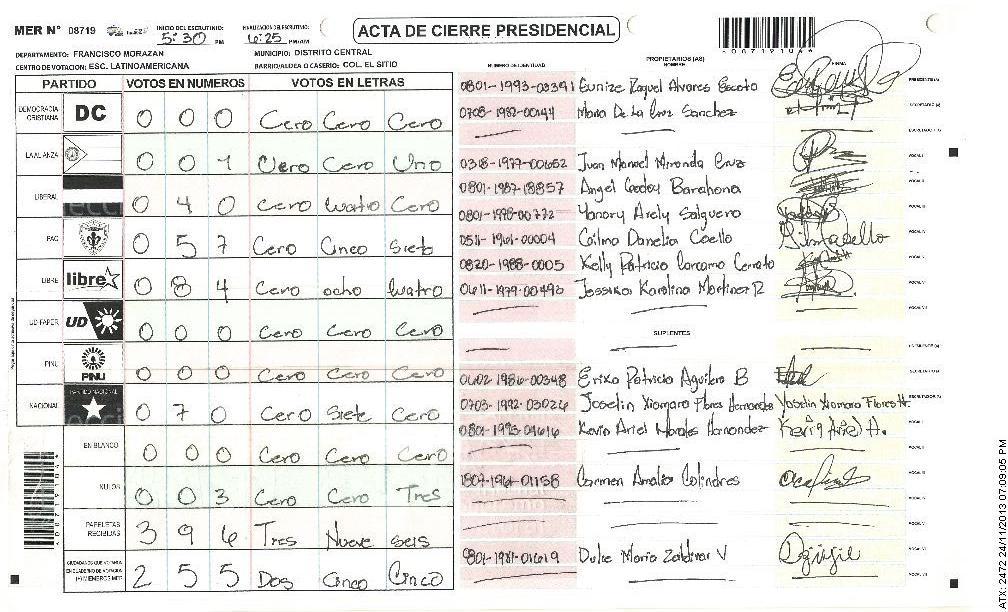 MER N° 08719 INICIO DEL ESCRUTINIO: 5:30 PM 6:25 PM/AM
ACTA DE CIERRE PRESIDENCIAL
DEPARTAMENTO: FRANCISCO MORAZAN MUNICIPIO: DISTRITO CENTRAL
CENTRO DE VOTACION: ESC. LATINOAMERICANA BARRIO/ALDEA O CASERIO: COL. EL SITIO
PARTIDO VOTOS EN NUMEROS VOTOS EN LETRAS
DEMOCRACIA CRISTIANA DC 0 0 0 Cero Cero Cero
LA ALIANZA 0 0 1 Cero Cero Uno
LIBERAL 0 4 0 Cero Cuatro Cero
PAC 0 5 7 Cero Cinco Siete
LIBRE libre 0 8 4 Cero ocho Cuatro
UD-FAPER UD 0 0 0 Cero Cero Cero
PINU PINU 0 0 0 Cero Cero Cero
NACIONAL 0 7 0 Cero Siete Cero
EN BLANCO 0 0 0 Cero Cero Cero
NULOS 0 0 3 Cero Cero Tres
PAPELETAS RECIBIDAS 3 9 6 Tres Nueve seis
2 5 5 Dos Cinco Cinco
NUMERO DE IDENTIDAD PROPIETARIOS (AS) NOMBRE FIRMA
0801-1993-03391 Eunize Raquel Alvares Escoto
0708-1982-00144 Maria De La Cruz Sanchez
0318-1979-00652 Juan Manuel Miranda Cruz
0801-1987-18857 Angel Godoy Barahona
Yanory Arely Salguero
0511-1961-00004 Coello
0820-1988-0005 Kelly Patricia Carcamo Cerrato
0611-1979-00493 Jessika Karolina Martinez R
SUPLENTES
0602 1986-00348 Erika Patricia Aguilera B
0703-1992-03026 Joselin Xiomara Flores Hernandez Yoselin Xiomara Flores H.
0801-1993-04616 Kevin Ariel Morales Hernandez Kevin Ariel H.
1807-1961-01158 Carmen Amalia Colindres
0801-1981-01619 Dulce Maria Zaldivar V
ATX: 2472 24/11/2013 07:09:05 PM